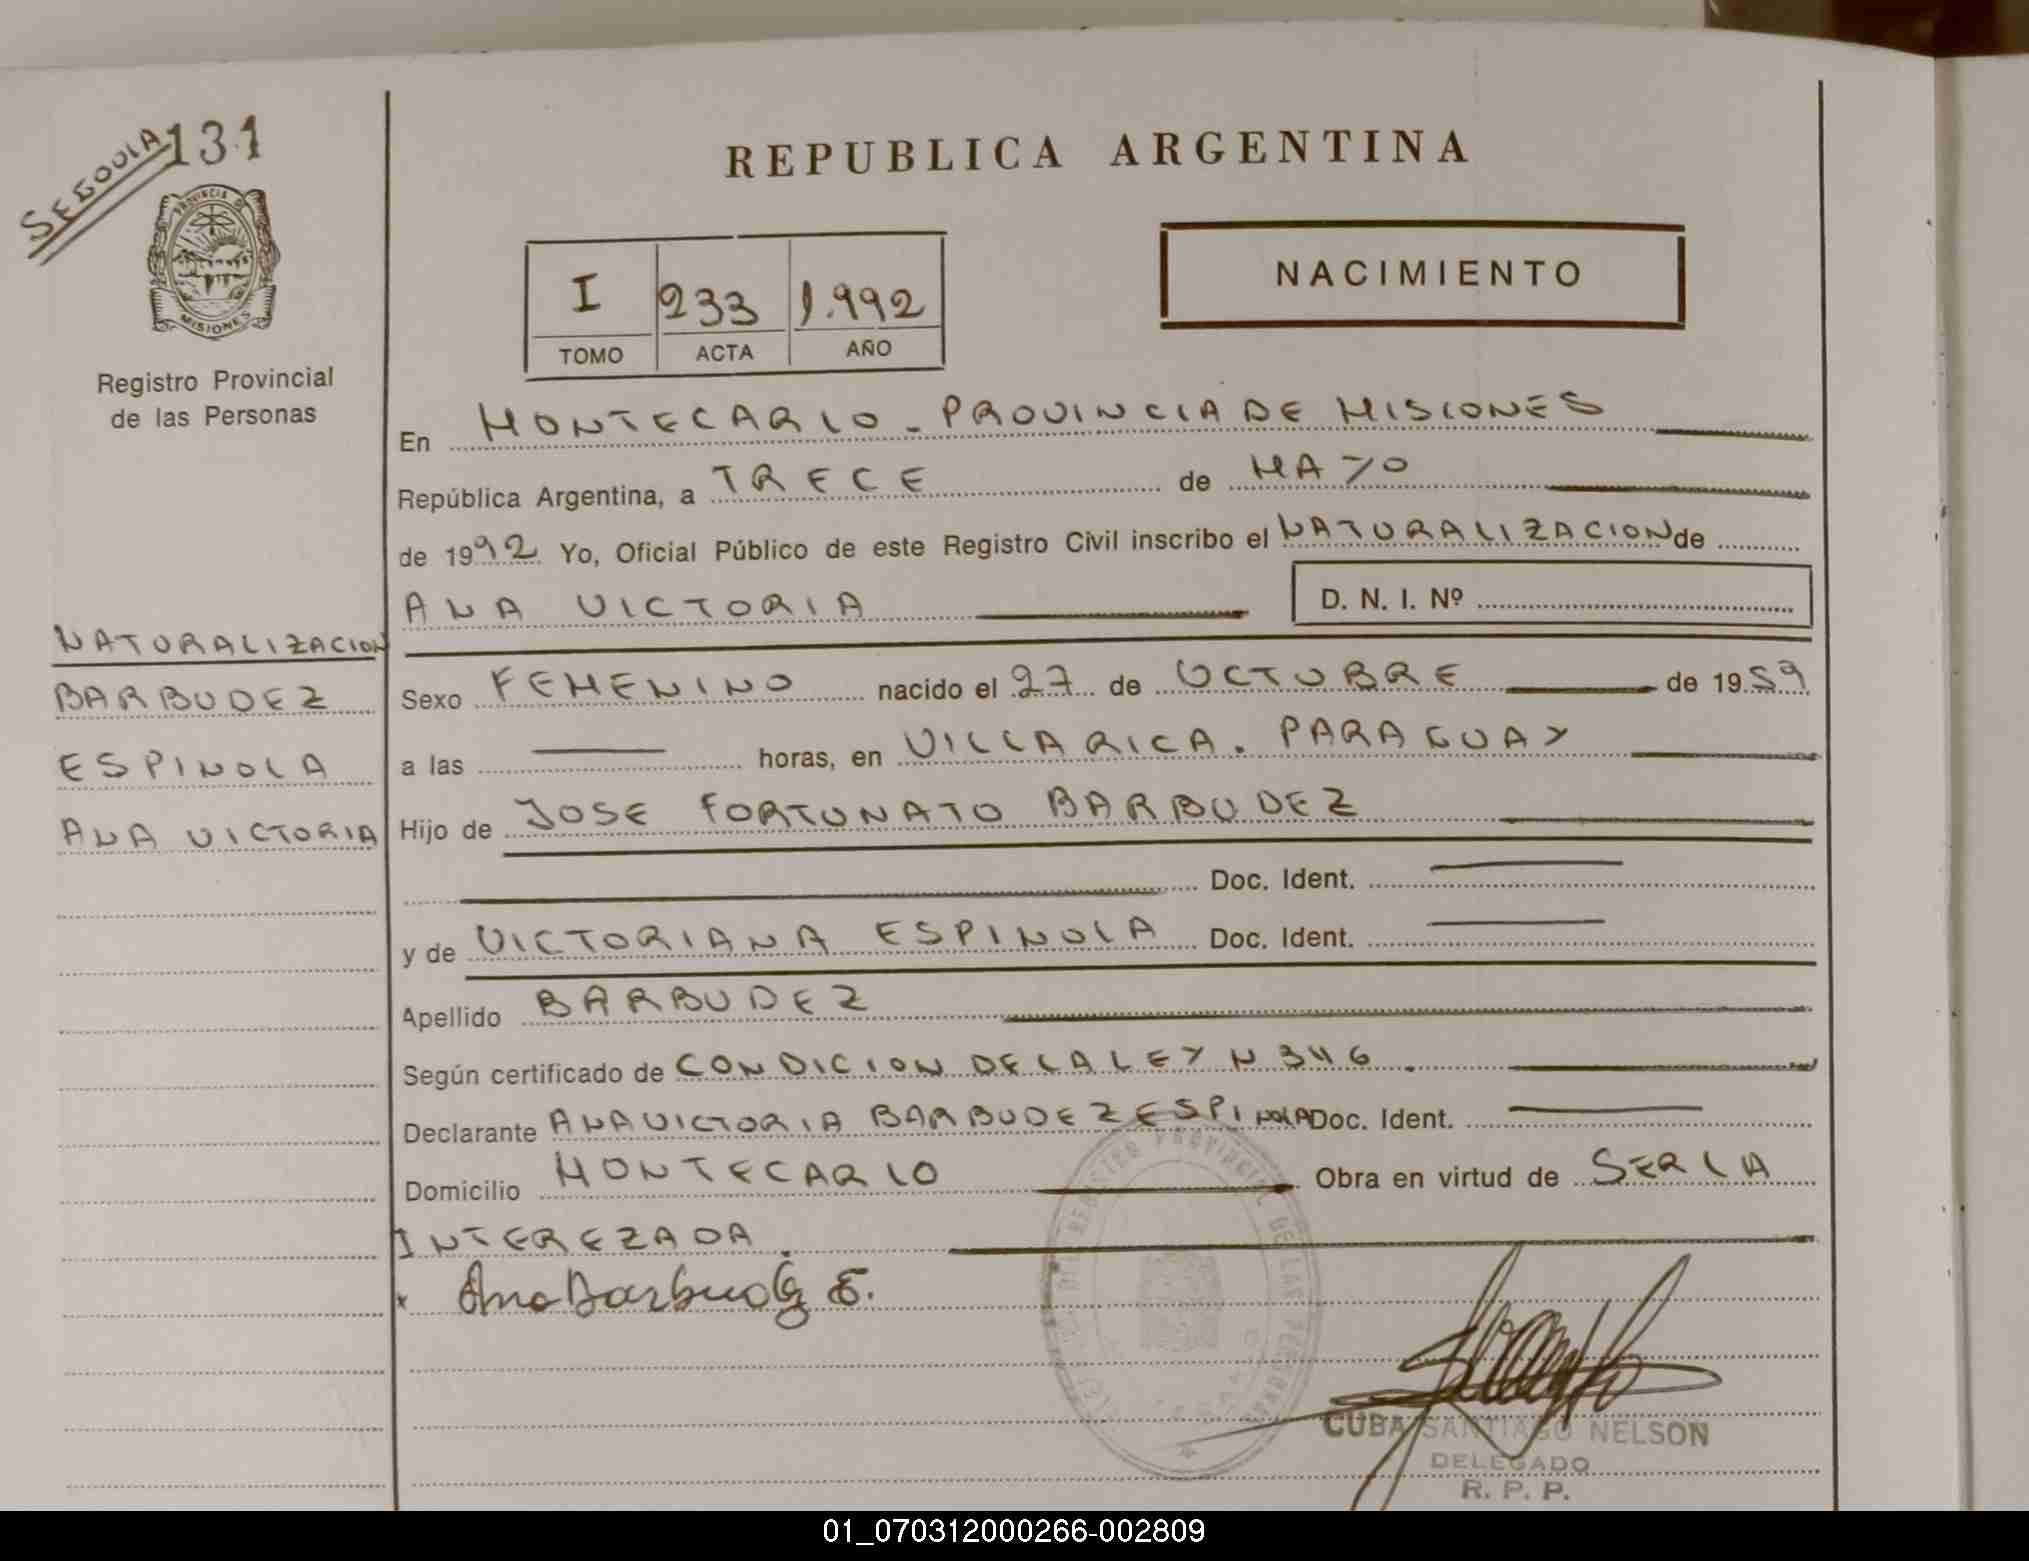 SEGOVIA 131
PROVINCIA DE
MISIONES
Registro Provincial
de las Personas
REPUBLICA ARGENTINA
I 233 1.992
TOMO ACTA AÑO
NACIMIENTO
En MONTECARLO - PROVINCIA DE MISIONES
República Argentina, a TRECE de MAYO
de 1992 Yo, Oficial Público de este Registro Civil inscribo el NATURALIZACION de
ANA VICTORIA D. N. I. Nº
NATURALIZACION
BARBUDEZ
ESPINOLA
ANA VICTORIA
Sexo FEMENINO nacido el 27 de OCTUBRE de 1959
a las horas, en VILLARICA. PARAGUAY
Hijo de JOSE FORTUNATO BARBUDEZ
Doc. Ident.
y de VICTORIANA ESPINOLA Doc. Ident.
Apellido BARBUDEZ
Según certificado de CONDICION DE LA LEY N 346.
Declarante ANA VICTORIA BARBUDEZ ESPINOLA Doc. Ident.
Domicilio MONTECARLO Obra en virtud de SER LA
INTEREZADA.
x Ana Barbudez E.
REGISTRO PROVINCIAL DE LAS PERSONAS
CUBA SANTIAGO NELSON
DELEGADO
R. P. P.
01_070312000266-002809